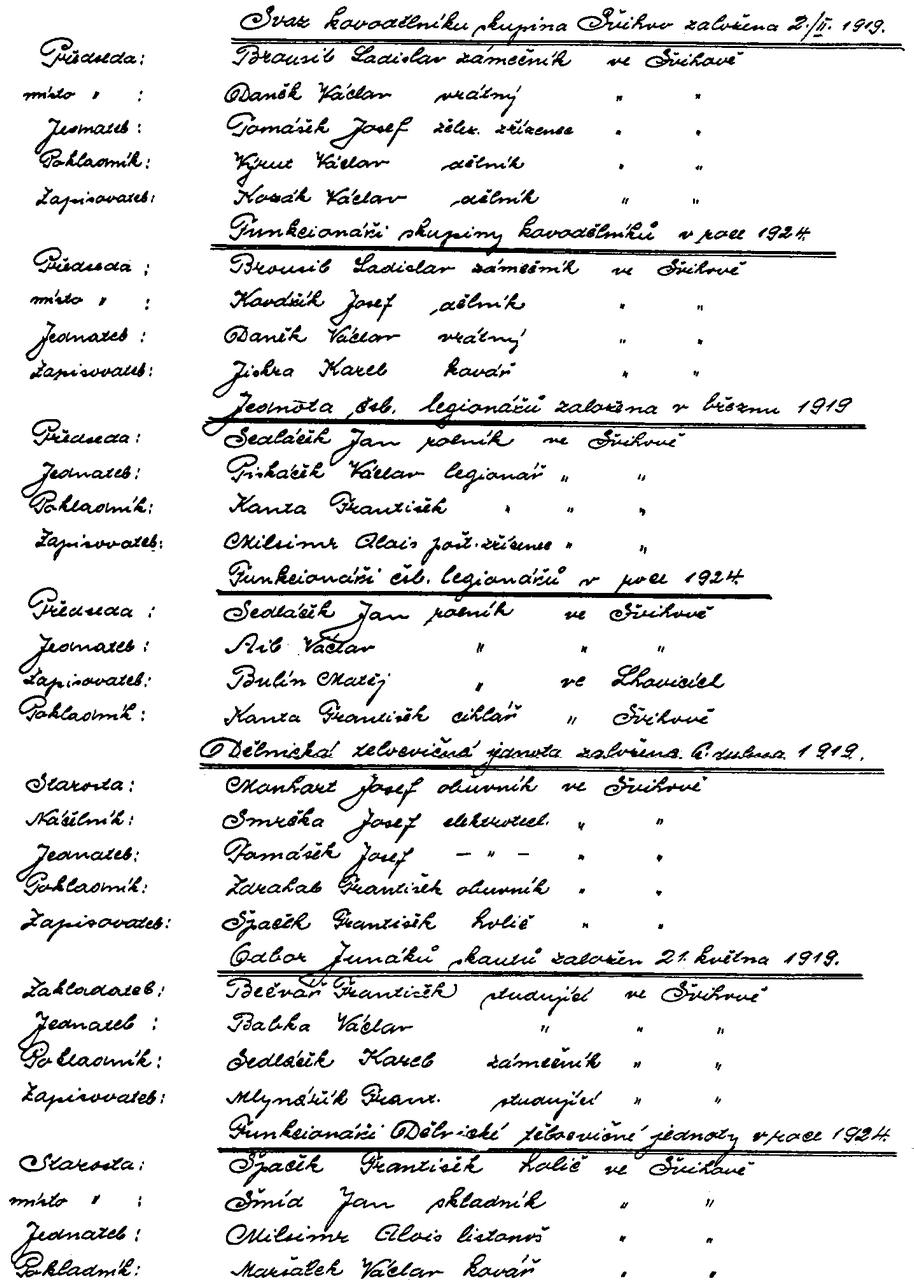 Svaz kovodělníku skupina Švihov založena 2./II. 1919.
Předseda: Brousil Ladislav zámečník ve Švihově
místo " : Daněk Václav vrátný " "
Jednatel: Tomášek Josef želez. zřízenec " "
Pokladník: Výrut Václav dělník " "
Zapisovatel: Kozák Václav dělník " "
Funkcionáři skupiny kovodělníků v roce 1924.
Předseda : Brousil Ladislav zámečník ve Švihově
místo " : Josef dělník " "
Jednatel : Daněk Václav vrátný " "
Zapisovatel: Jiskra Karel kovář " "
Jednota čsl. legionářů založena v březnu 1919
Předseda: Sedláčik Jan rolník ve Švihově
Jednatel: Piskáček Václav legionář " "
Pokladník: Kanta František " " "
Zapisovatel: Milsimr Alois pošt. zřízenec " "
Funkcionáři čsl. legionářů v roce 1924
Předseda : Sedláčik Jan rolník ve Švihově
Jednatel: Václav " " "
Zapisovatel: Bulín Matěj " ve Lhovicích
Pokladník: Kanta František cihlář " Švihově
Dělnická tělocvičná jednota založena 6. dubna 1919.
Starosta: Manhart Josef obuvník ve Švihově
Náčelník: Smrčka Josef elektrotech. " "
Jednatel: Tomášek Josef – " – " "
Pokladník: Zdrahal František obuvník " "
Zapisovatel: Špaček František holič " "
Odbor Junáků skautů založen 21. května 1919.
Zakladatel: Bečvář František studující ve Švihově
Jednatel : Babka Václav " " "
Pokladník: Sedláčik Karel zámečník " "
Zapisovatel: Mlynářík Frant. studující " "
Funkcionáři Dělnické tělocvičné jednoty v roce 1924.
Starosta: Špaček František holič ve Švihově
místo " : Šmíd Jan skladník " "
Jednatel: Milsimr Alois listonoš " "
Pokladník: Maršálek Václav kovář " "